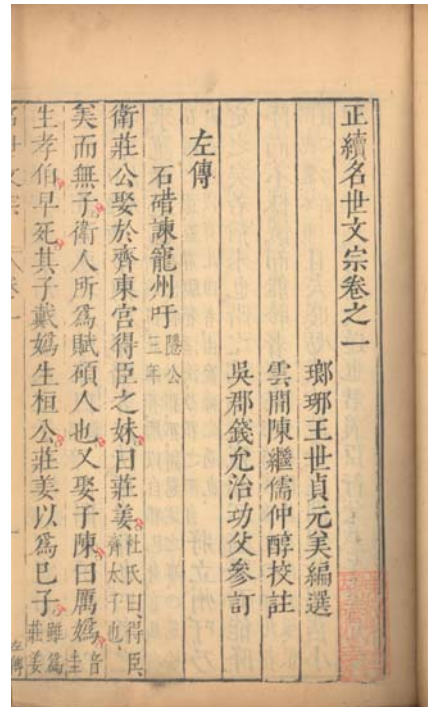 正續名世文宗卷之一
瑯琊王世貞元美編選
雲間陳繼儒仲醇校註
吳郡錢允治功父參訂
左傳
石碏諫寵州吁隱公三年
衛莊公娶於齊東宮得臣之妹曰莊姜杜氏曰得臣齊太子也
美而無子衛人所爲賦碩人也又娶于陳曰厲嬀音圭
生孝伯早死其子戴嬀生桓公莊姜以爲已子雖爲莊姜
名世文宗 卷一
左傳